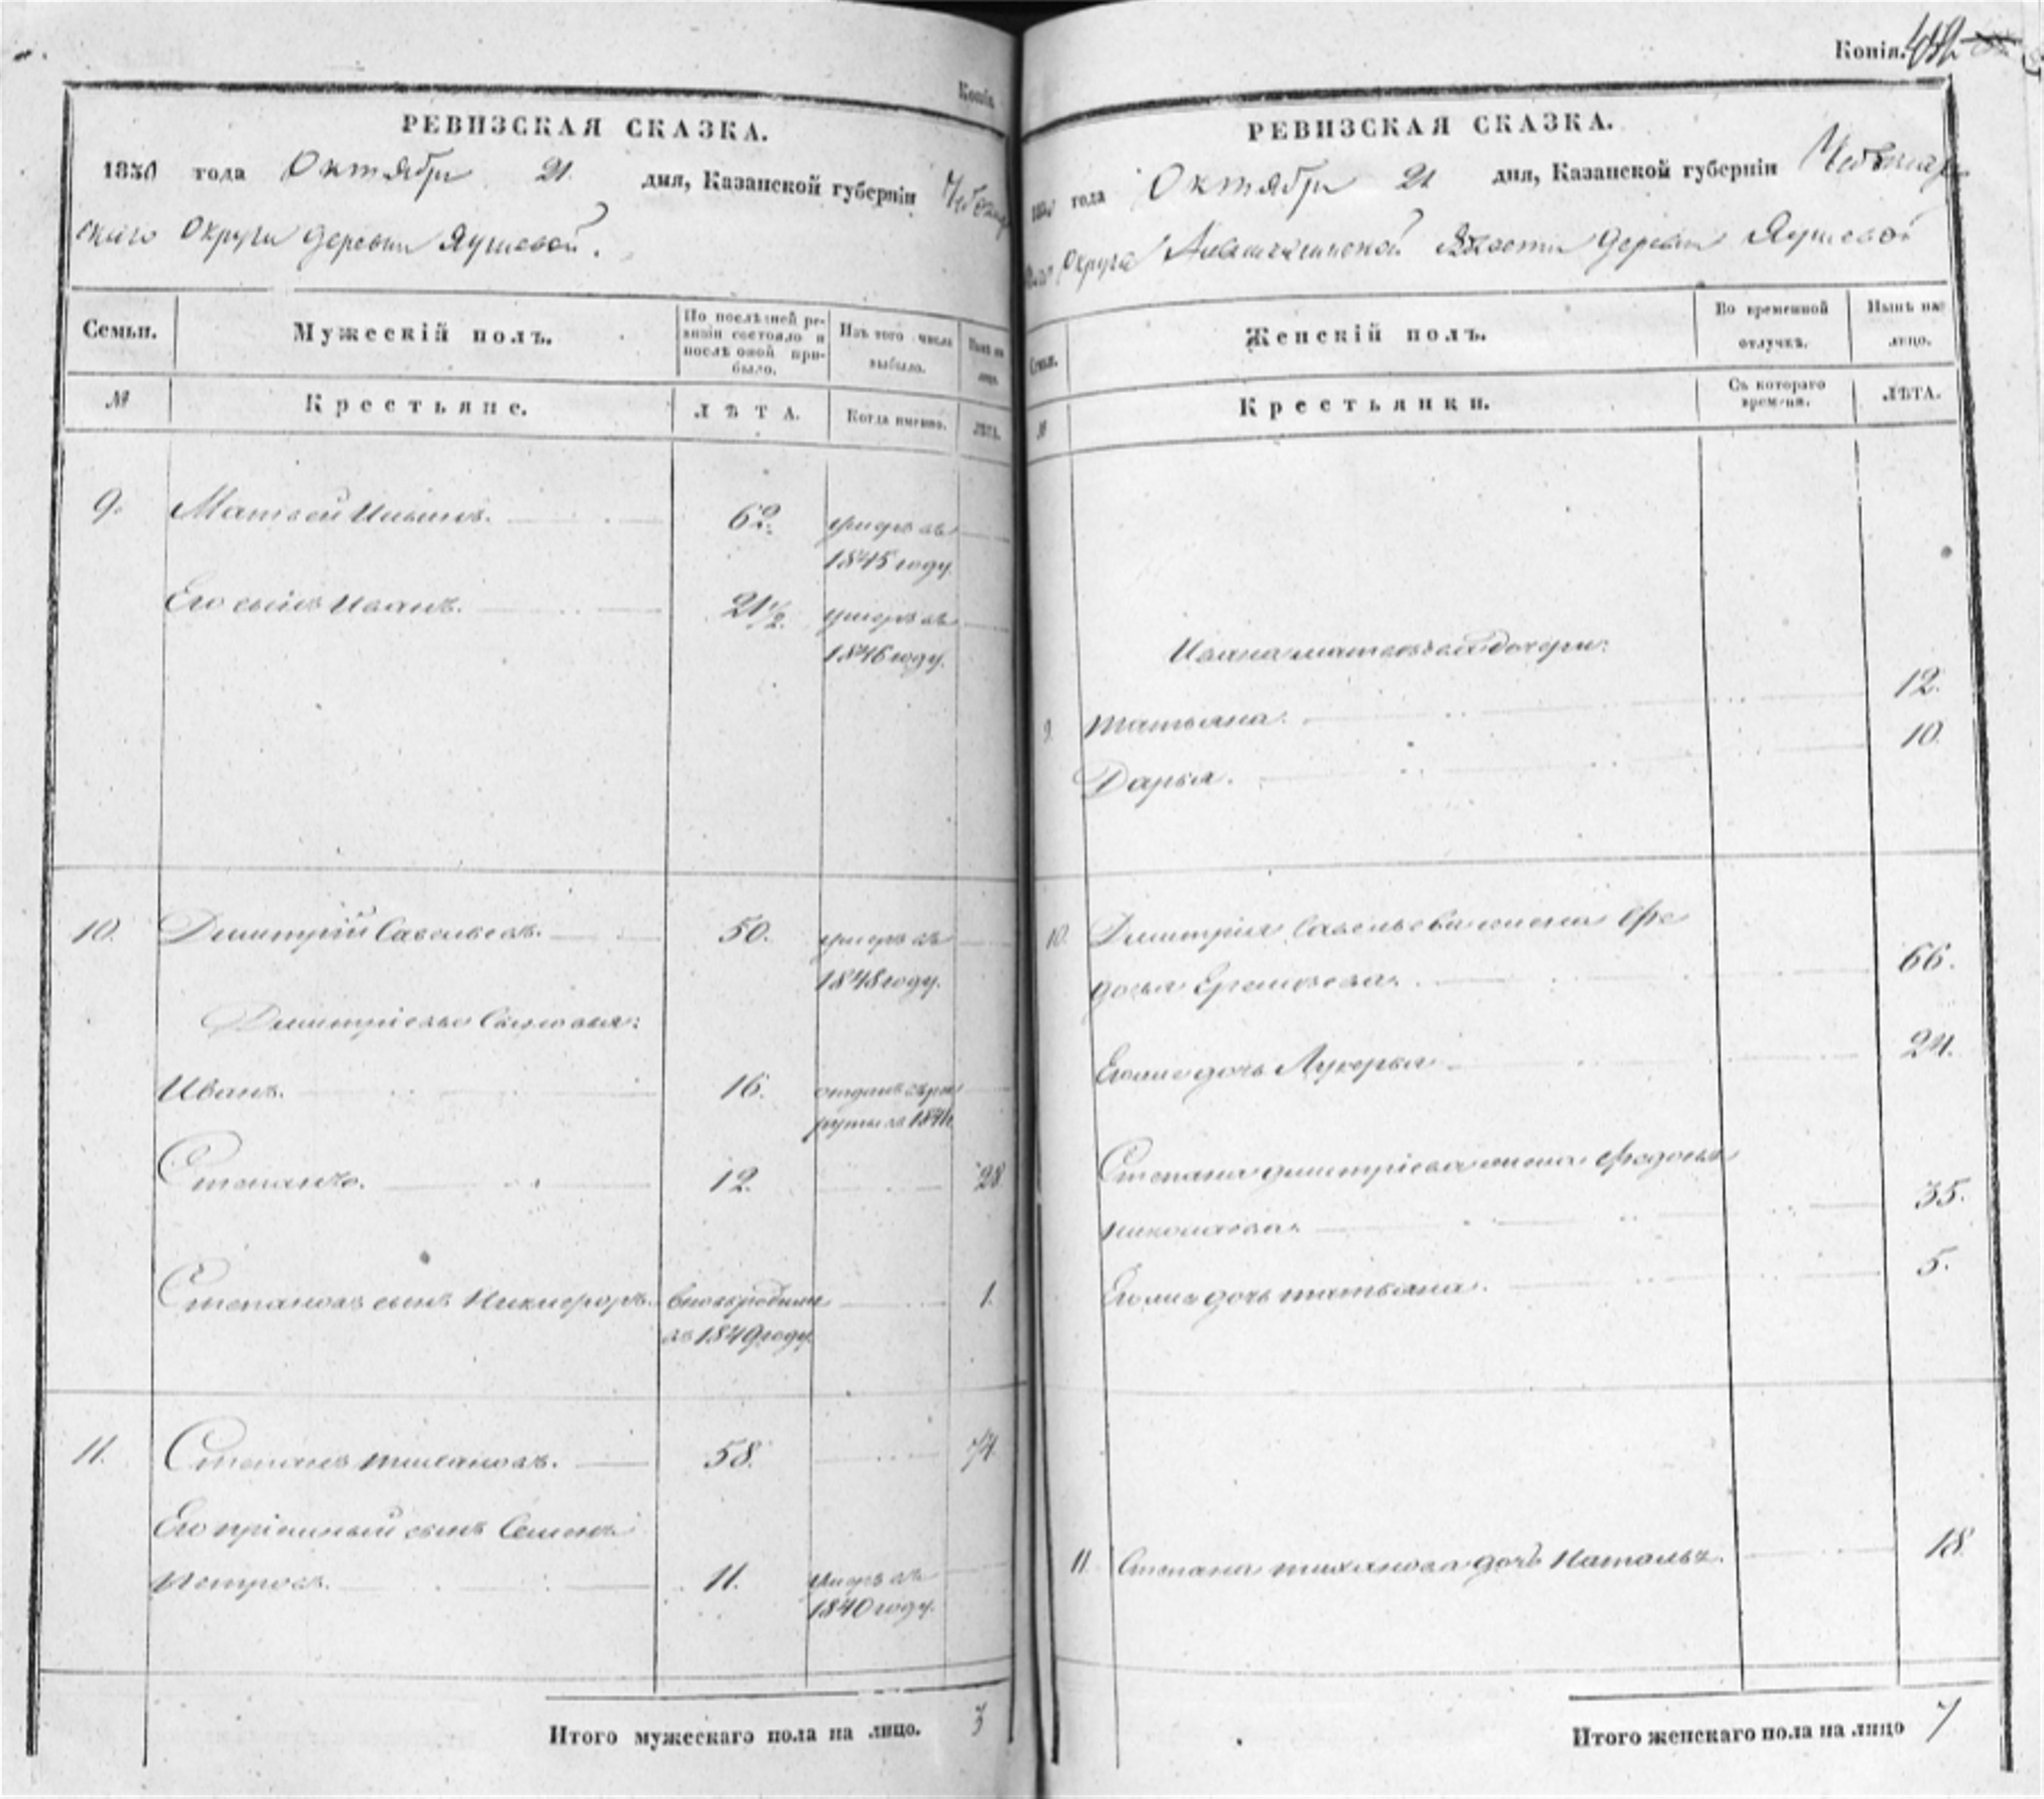 Копія.
РЕВИЗСКАЯ СКАЗКА.
1850 года Октября 21 дня, Казанской губерніи Чебоксар
скаго Округа деревни Яушевой.
Семьи. Мужескій полъ. По послѣдней ре-
визіи состояло и
послѣ оной при-
было. Изъ того числа
выбыло. Нынѣ на
лицо.
№ Крестьяне. ЛѢТА. Когда именно. ЛѢТА.
9. Матвей Ильинъ. 62. умеръ въ
1845 году.
Его сынъ Иванъ. 21 1/2. умеръ въ
1846 году.
10. Димитрій Савельевъ. 50. умеръ въ
1848 году.
Димитріевы Сыновья:
Иванъ. 16. отданъ въ рек
руты въ
Степанъ. 12. 28
Степановъ сынъ Никифоръ. вновь родился 1.
въ 1849 году
11. Степанъ Тихановъ. 58. 74.
Его пріемный сынъ Семенъ
Петровъ. 11. умеръ въ
1840 году.
Итого мужескаго пола на лицо. 3
Копія.
РЕВИЗСКАЯ СКАЗКА.
1850 года Октября 21 дня, Казанской губерніи Чебоксар
скаго Округа Волости деревни Яушевой
Семьи. Женскій полъ. Во временной
отлучкѣ. Нынѣ на
лицо.
№ Крестьянки. Съ котораго
времени. ЛѢТА.
Ивана Матвеева дочери:
9. Татьяна. 12.
Дарья. 10.
10. Димитрія Савельева жена Фе
досья 66.
Его дочь Лукерья 24.
Степана Димитріева жена Федосья
Николаева. 35.
Его дочь Татьяна. 5.
11. Степана Тиханова дочь Наталья. 18.
Итого женскаго пола на лицо 7